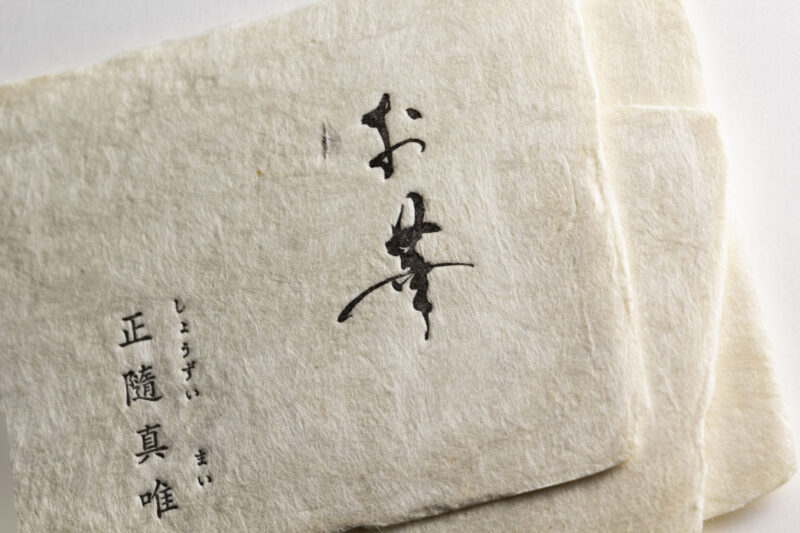 お華
しょうずい まい
正隨真唯